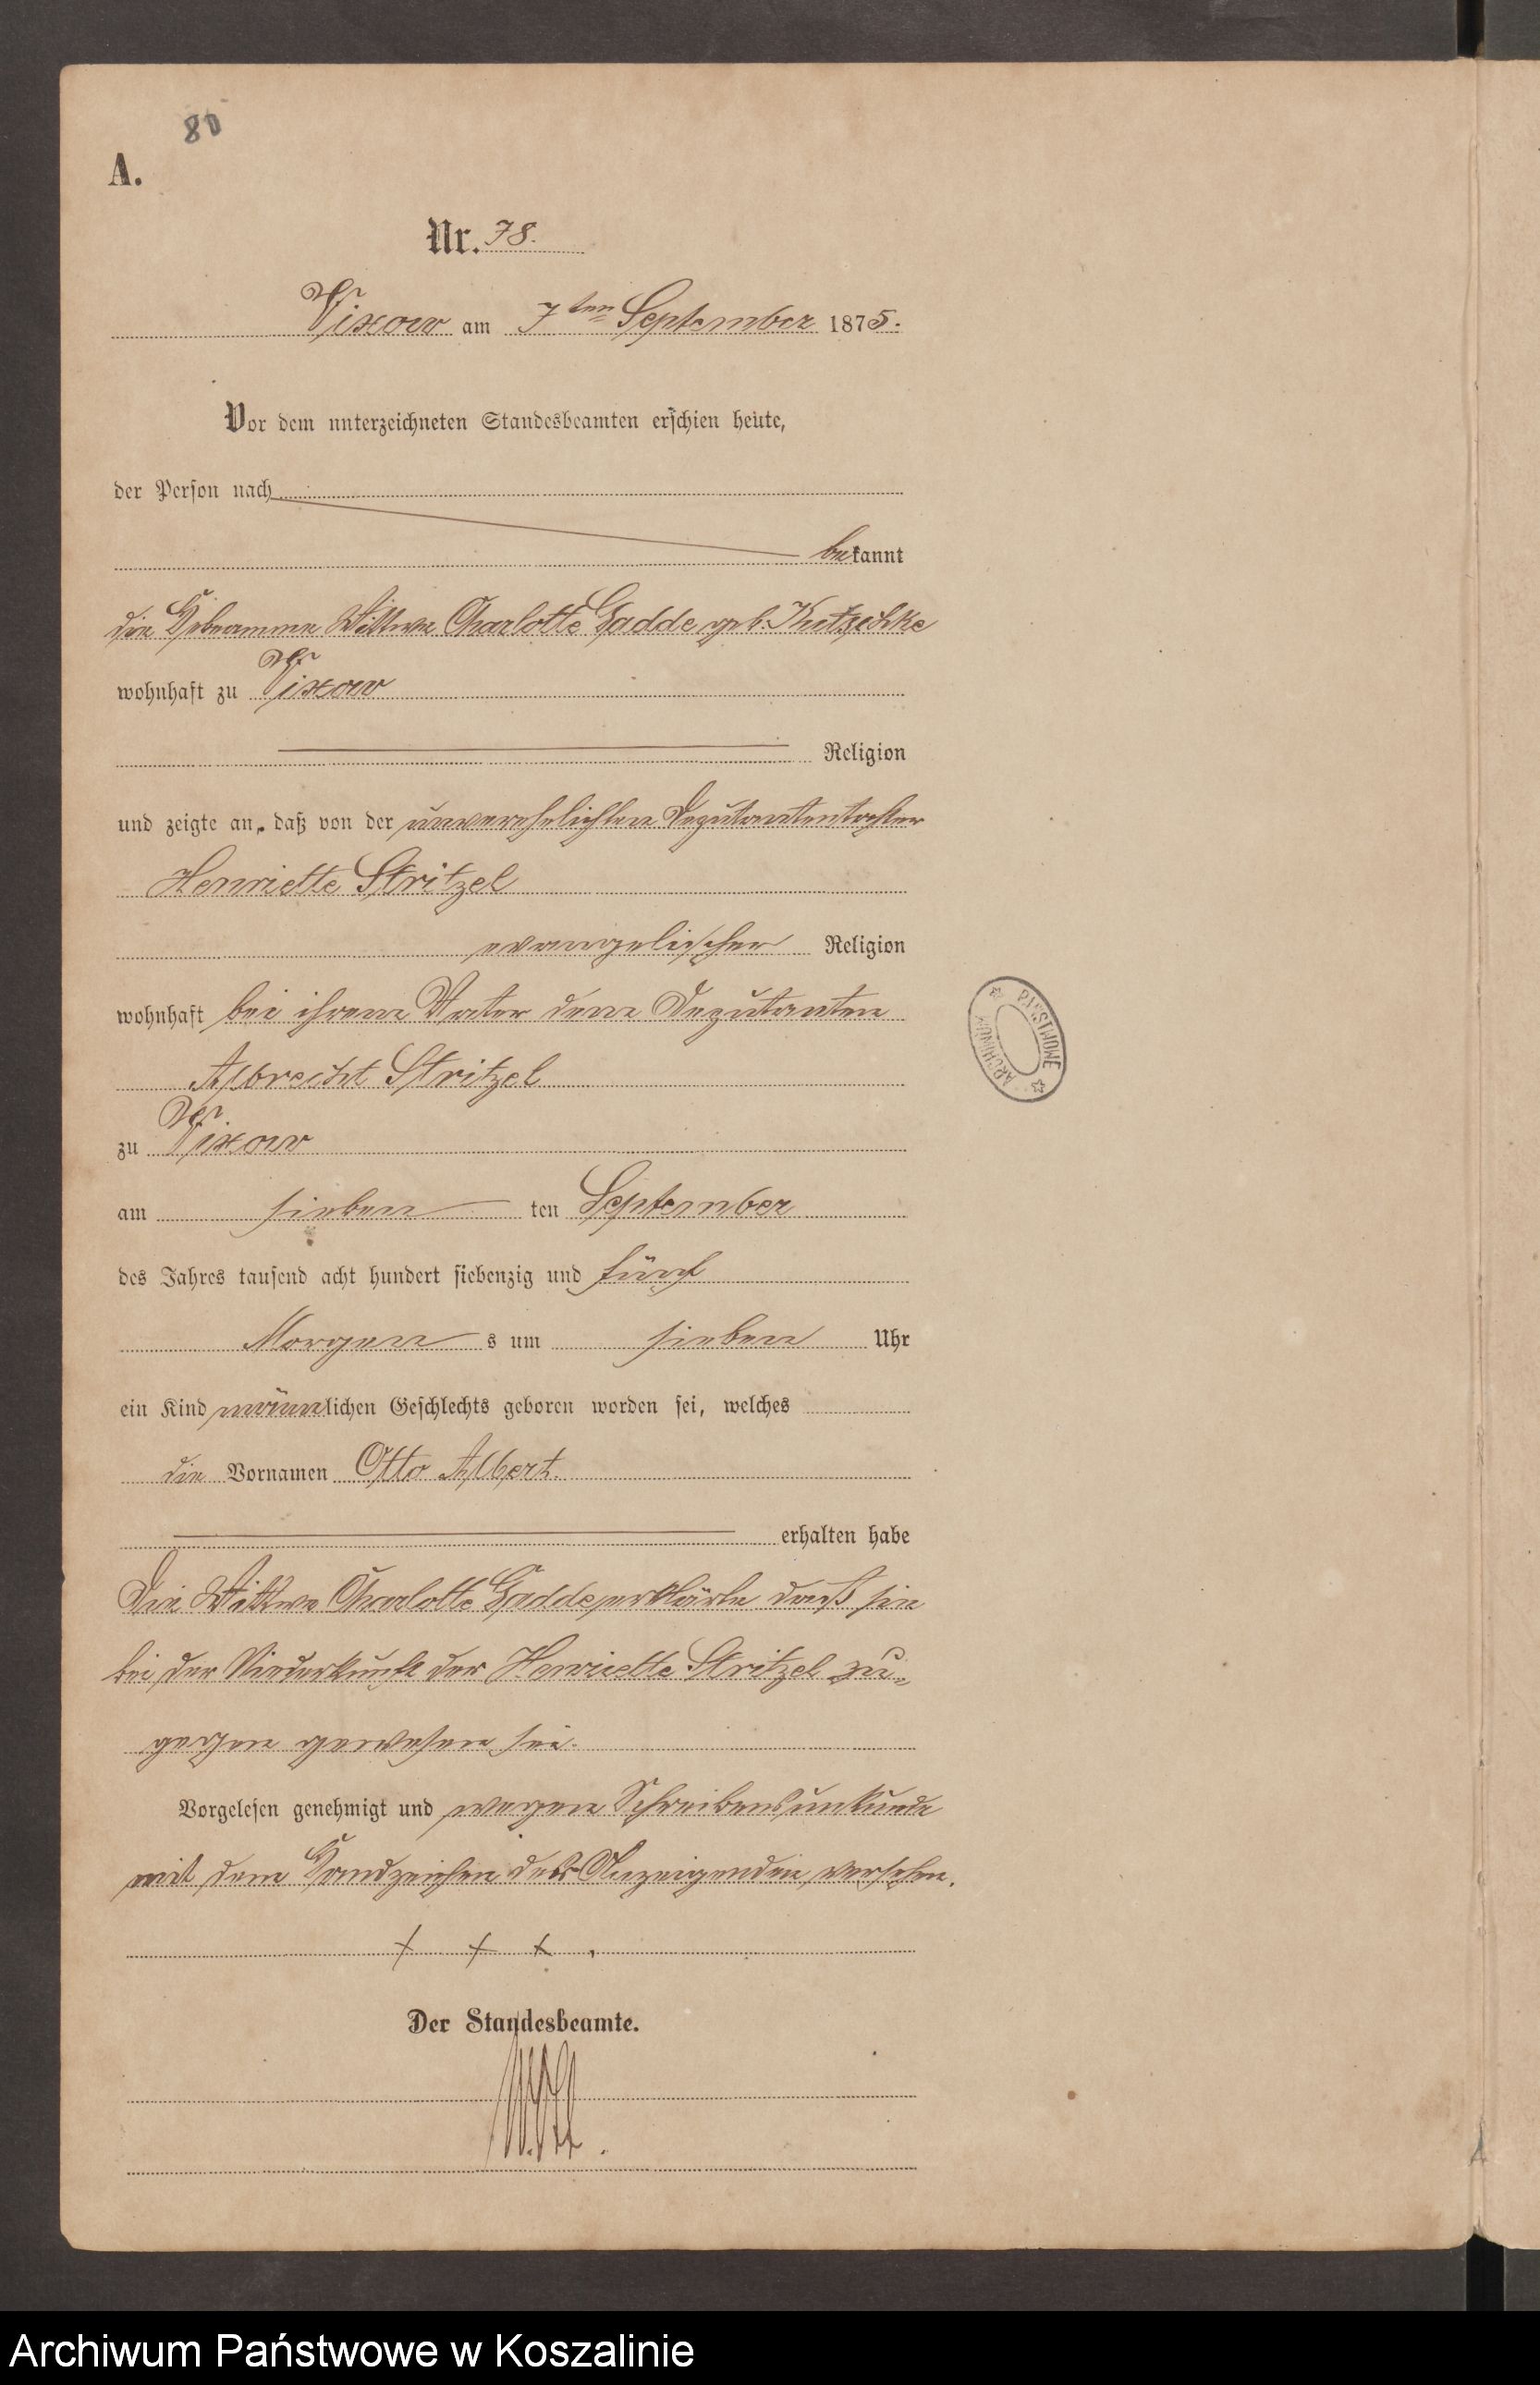 80
A.
Nr. 78.
Vixow am 7ten September 1875.
Vor dem unterzeichneten Standesbeamten erschien heute,
der Person nach
bekannt
die Hebeamme Wittwe Charlotte Gadde geb. Kutzschke
wohnhaft zu Vixow
Religion
und zeigte an, daß von der unverehelichten Deputantentochter
Henriette Stritzel
evangelischer Religion
wohnhaft bei ihrem Vater dem Deputanten
Albrecht Stritzel
zu Vixow
am sieben ten September
des Jahres tausend acht hundert siebenzig und fünf
Morgen s um sieben Uhr
ein Kind männlichen Geschlechts geboren worden sei, welches
die Vornamen Otto Albert.
erhalten habe
Die Wittwe Charlotte Gadde erklärte daß sie
bei der Niederkunft der Henriette Stritzel zu-
gegen gewesen sei.
Vorgelesen genehmigt und wegen Schreibensunkunde
mit dem Handzeichen der Anzeigenden versehen.
+ + +.
Der Standesbeamte.
ARCHIWUM PAŃSTWOWE
Archiwum Państwowe w Koszalinie